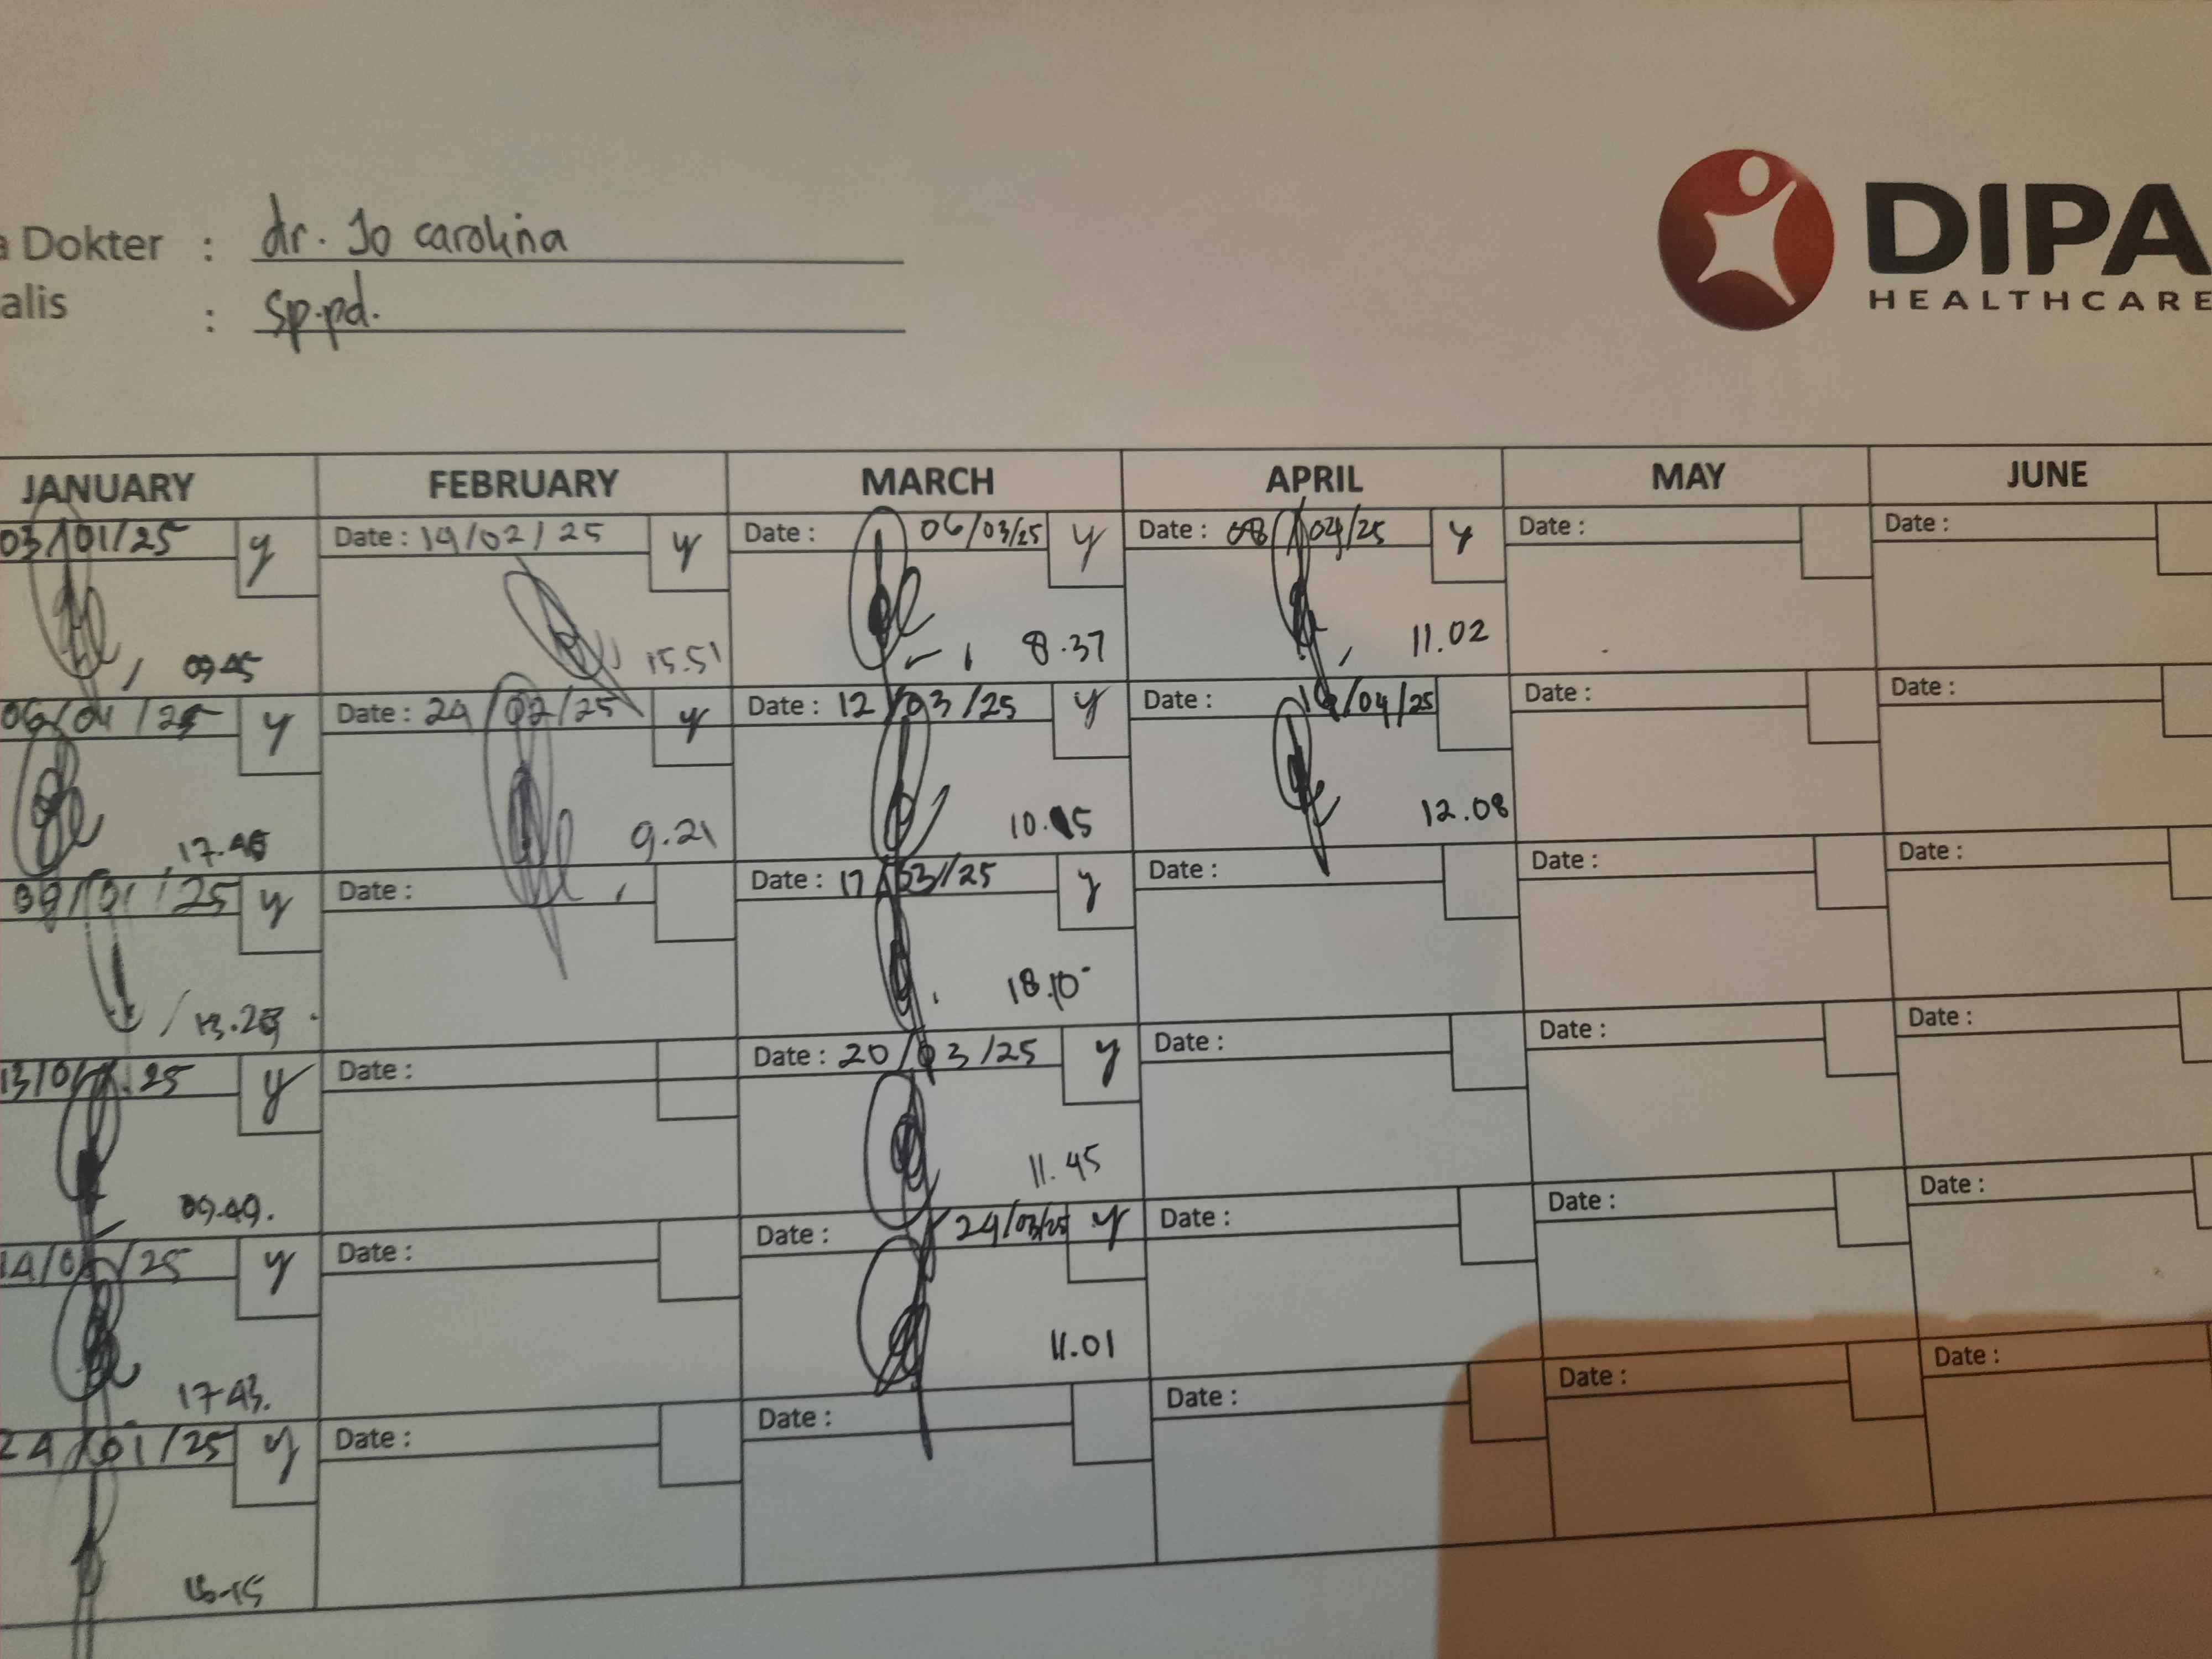 a Dokter : dr. Jo carolina
alis : Sp.pd.
DIPA
HEALTHCARE
JANUARY FEBRUARY MARCH APRIL MAY JUNE
03/01/25 y Date : 19/02/25 y Date : 06/03/25 y Date : 08/04/25 y Date : Date :
09.45 15.51 8.37 11.02
06/01/25 y Date : 24/02/25 y Date : 12/03/25 y Date : /04/25 Date : Date :
17.46 9.21 10.15 12.08
09/01/25 y Date : Date : 17/03/25 y Date : Date : Date :
13.25 18.10
13/01/25 y Date : Date : 20/03/25 y Date : Date : Date :
09.49. 11.45
14/01/25 y Date : Date : 24/03/25 y Date : Date : Date :
17.43. 11.01
24/01/25 y Date : Date : Date : Date : Date :